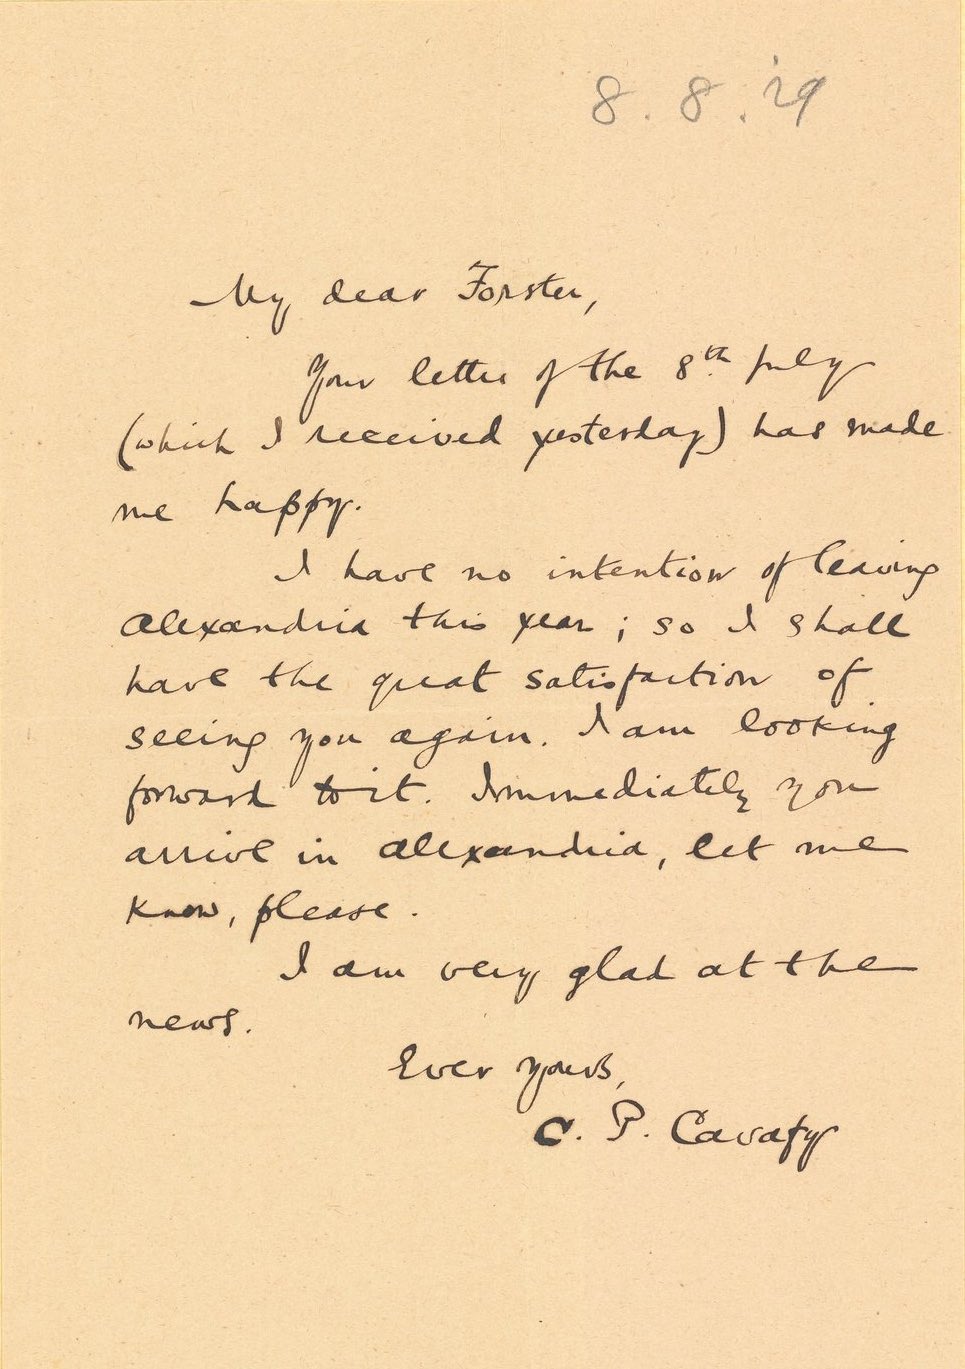 8.8.'29
My dear Forster,
Your letter of the 8th July
(which I received yesterday) has made
me happy.
I have no intention of leaving
Alexandria this year; so I shall
have the great satisfaction of
seeing you again. I am looking
forward to it. Immediately you
arrive in Alexandria, let me
know, please.
I am very glad at the
news.
Ever yours,
C. P. Cavafy